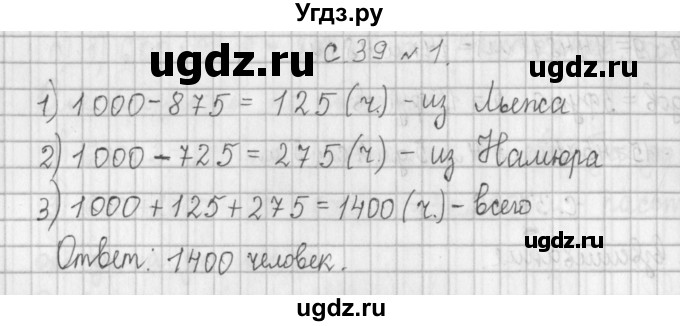 Угдз.ру
с 39 № 1.
ugdz.ru ugdz.ru
1) 1000-875 = 125 (ч.) - из Льежа
2) 1000-725 = 275 (ч) - из Намюра
3) 1000+125+275=1400 (ч.) - всего
ugdz.ru
Ответ: 1400 человек.
ugdz.ru